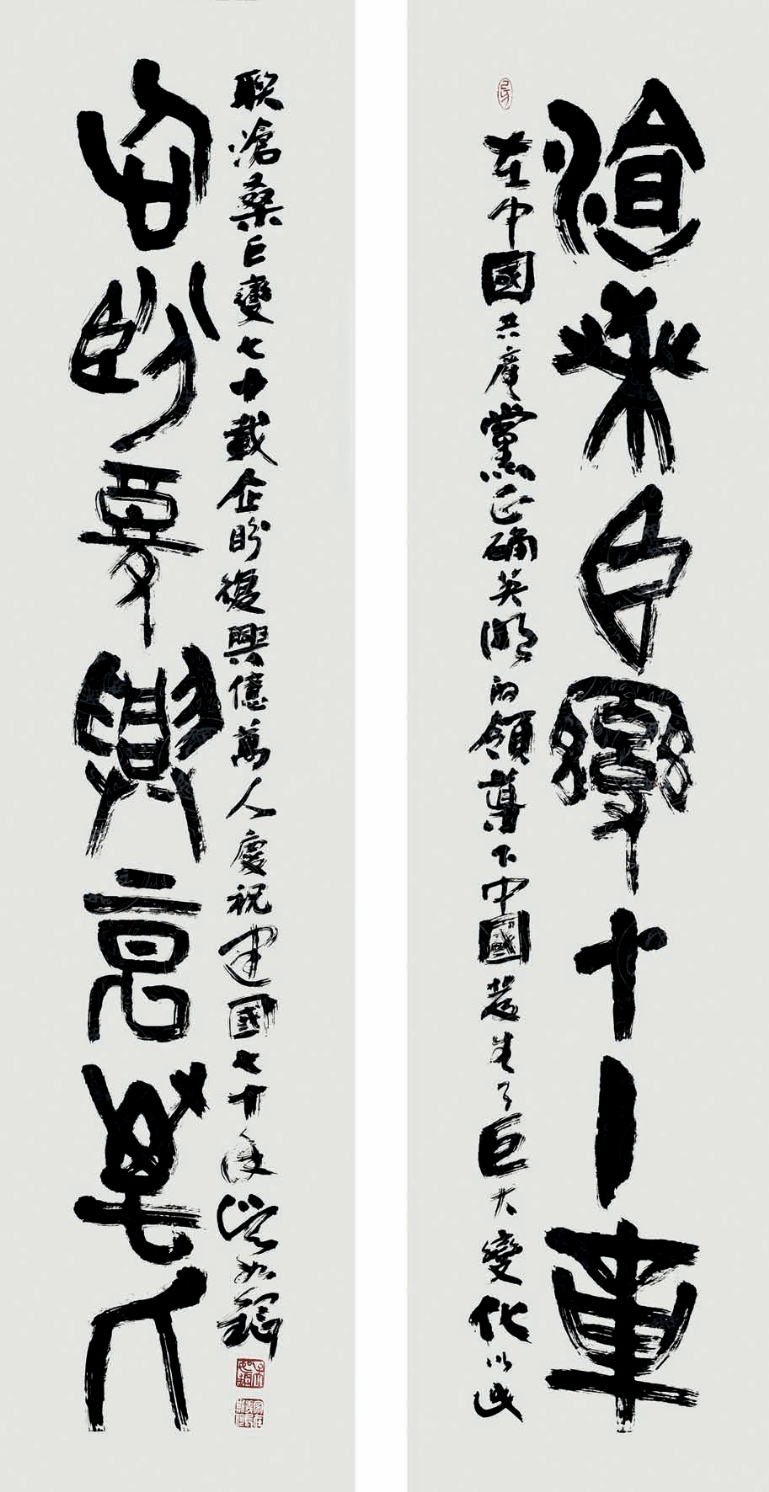 滄桑巨變七十載
在中國共產黨正確英明的領導下中國發生了巨大變化以此
聯滄桑巨變七十載企盼復興億萬人慶祝建國七十年
企盼復興億萬人